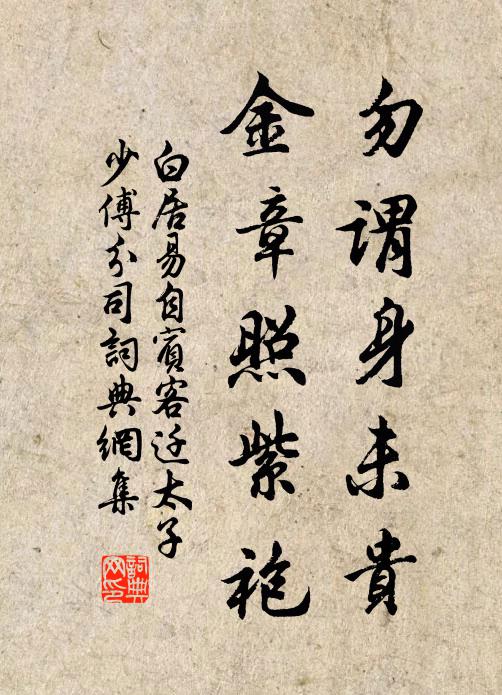 勿謂身未貴
金章照紫袍
白居易自賓客迁太子
少傅分司詞典網集
詞典网印